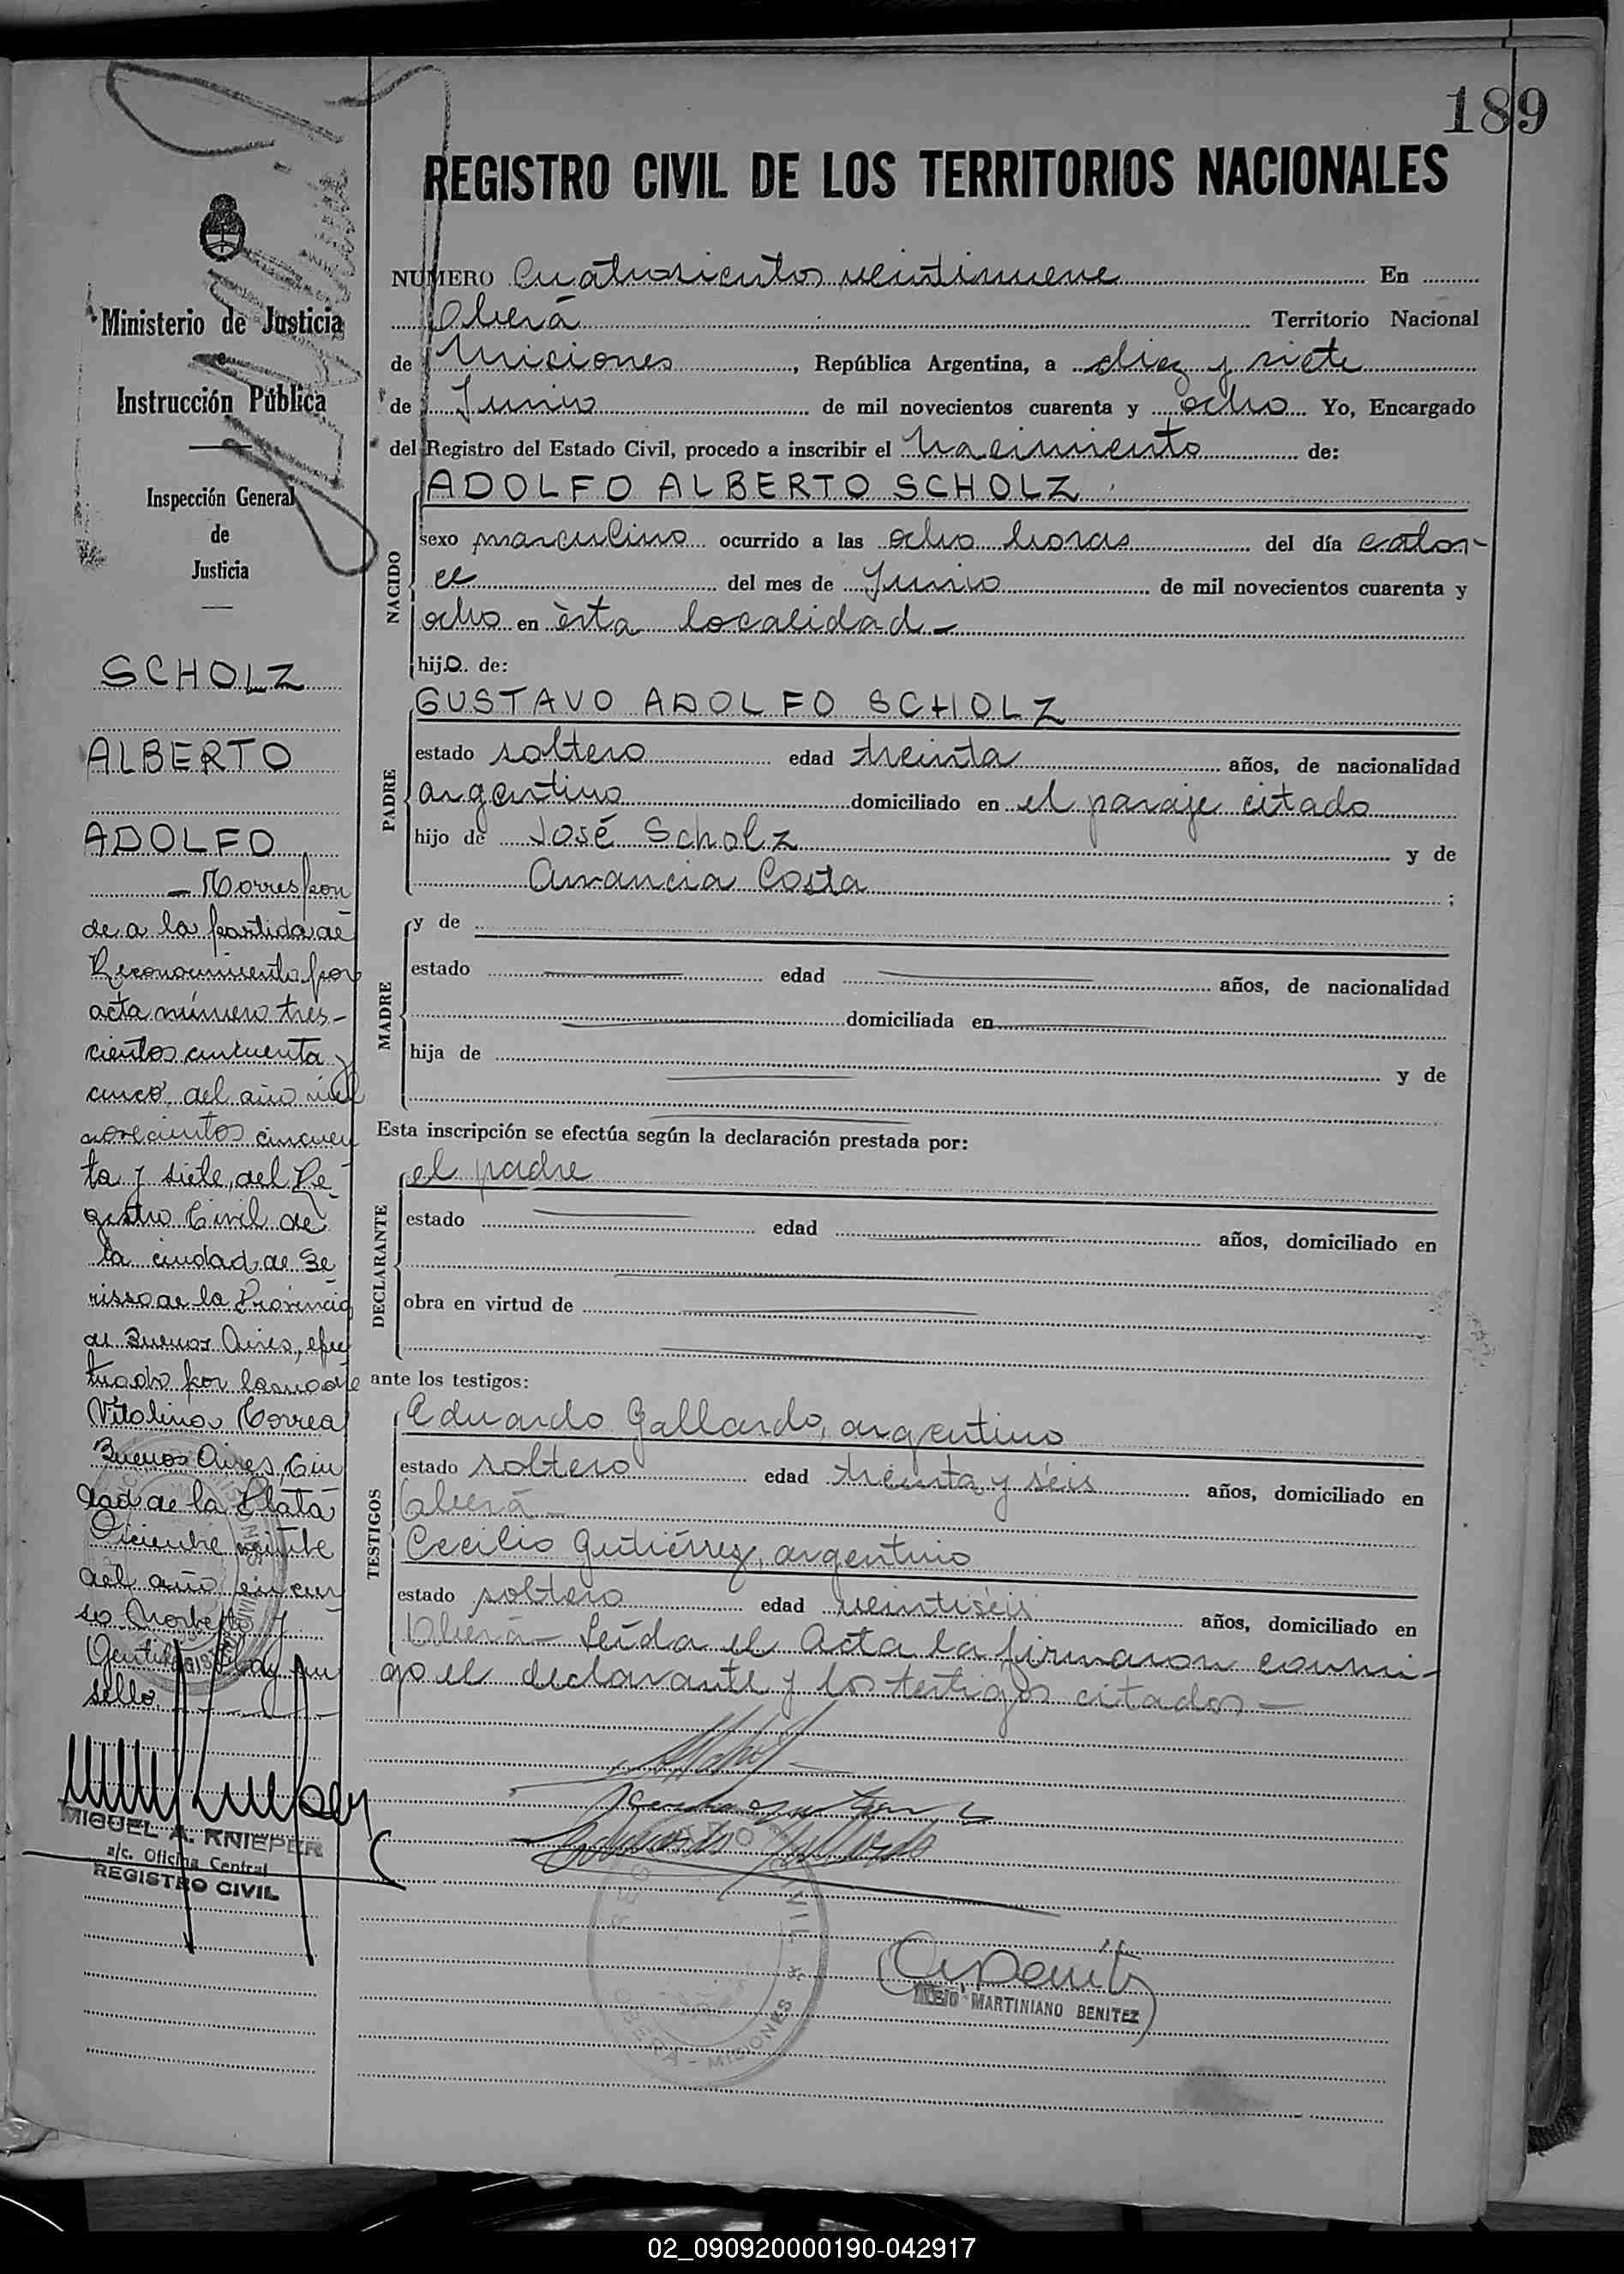 189
REGISTRO CIVIL DE LOS TERRITORIOS NACIONALES
Ministerio de Justicia
e
Instrucción Pública
Inspección General
de
Justicia
SCHOLZ
ALBERTO
ADOLFO
- Corres pon
de a la partida de
Reconocimiento por
acta número tres-
cientos cincuenta y
cinco del año mil
novecientos cincuen
ta y siete, del Re
gistro Civil de
la ciudad de Be
risso de la Provincia
de Buenos Aires, efec
tuado por la madre
Vitalina Correa
Buenos Aires, Ciu
dad de la Plata
Diciembre veinte
del año en cur
so Norberto J
Gentile Hay un
sello.
MIGUEL A. KNIEPER
a/c. Oficina Central
REGISTRO CIVIL
NUMERO Cuatrosientos veintinueve En
Oberá Territorio Nacional
de Miciones, República Argentina, a diez y siete
de Junio de mil novecientos cuarenta y ocho Yo, Encargado
del Registro del Estado Civil, procedo a inscribir el nacimiento de:
NACIDO
ADOLFO ALBERTO SCHOLZ
sexo masculino ocurrido a las ocho horas del día cator-
ce del mes de Junio de mil novecientos cuarenta y
ocho en ésta localidad-
hijo de:
PADRE
GUSTAVO ADOLFO SCHOLZ
estado soltero edad treinta años, de nacionalidad
argentino domiciliado en el paraje citado
hijo de José Scholz y de
Costa;
MADRE
y de
estado edad años, de nacionalidad
domiciliada en
hija de y de
Esta inscripción se efectúa según la declaración prestada por:
DECLARANTE
el padre
estado edad años, domiciliado en
obra en virtud de
ante los testigos:
TESTIGOS
Eduardo Gallardo, argentino
estado soltero edad treinta y séis años, domiciliado en
Oberá-
Cecilio Gutiérrez, argentino
estado soltero edad veintiséis años, domiciliado en
Oberá- Leída el Acta la firmaron conmi-
go el declarante y los testigos citados-
Eduardo Gallardo
REGISTRO CIVIL
OBERA - MISIONES
MARTINIANO BENITEZ
02_090920000190-042917